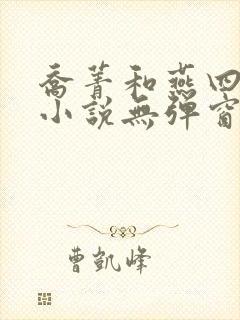 喬菁和燕四
小說無彈窗
曹凱峰